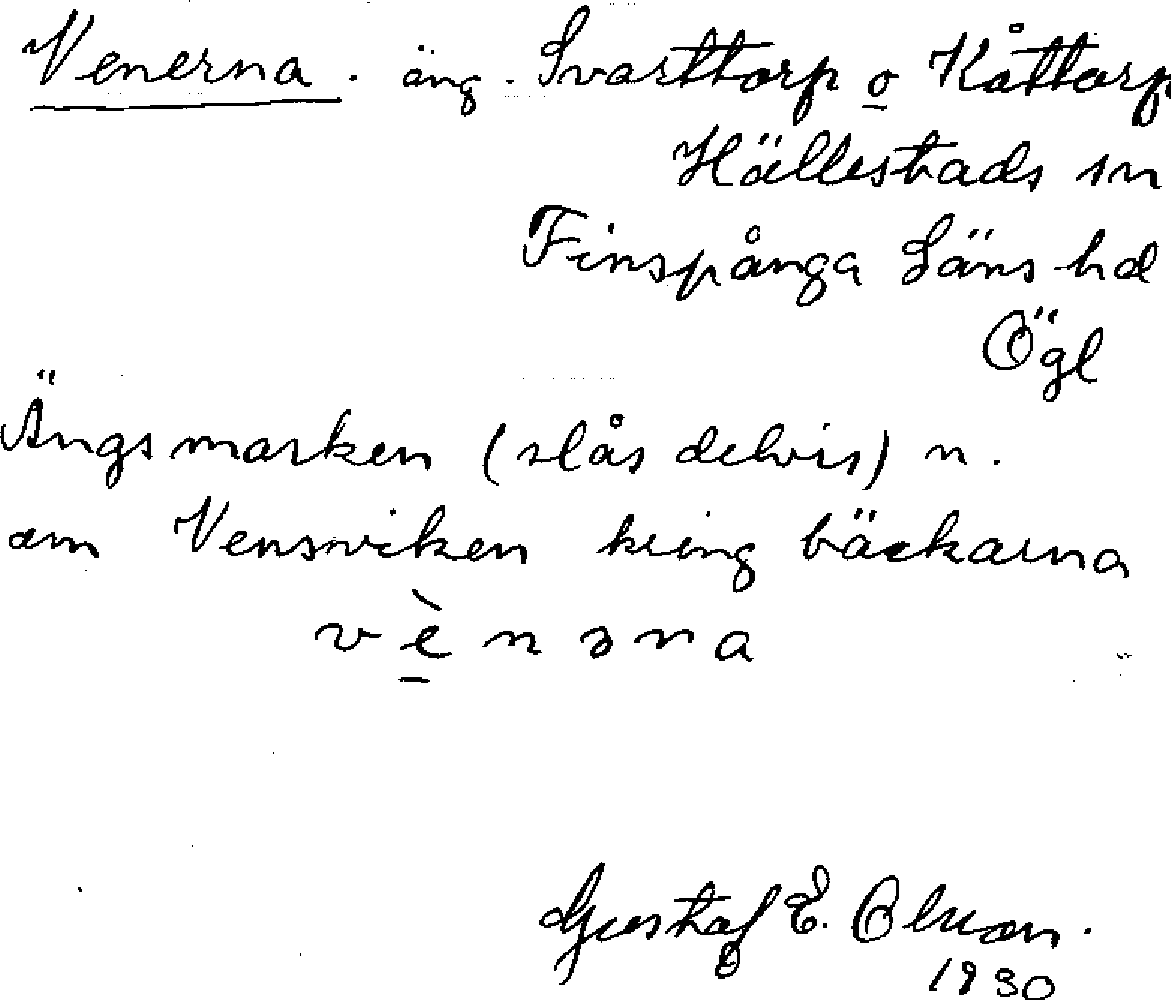 Venerna . äng . Svarttorp o Kåttorp
Hällestads sn
Finspånga Läns hd
Ögl
Ängsmarken (slås delvis) n.
om Vensviken kring bäckarna
vènəna
Gustaf E. Olson.
1930